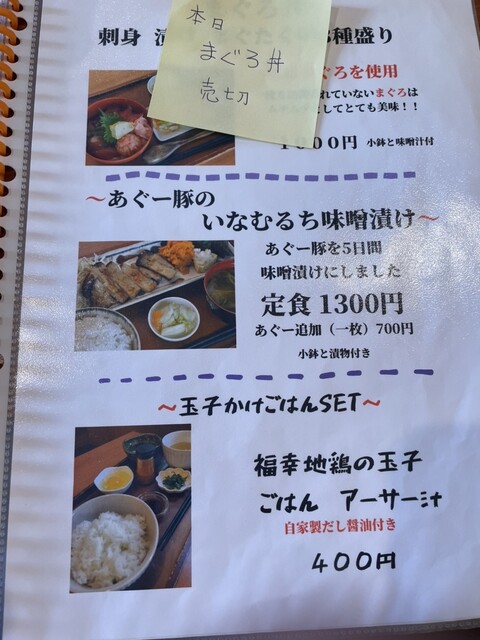 本日
まぐろ丼
売切
刺身
種盛り
ぐろを使用
れていないまぐろは
してとても美味！！
000円 小鉢と味噌汁付
～あぐー豚の
いなむるち味噌漬け～
あぐー豚を5日間
味噌漬けにしました
定食 1300円
あぐー追加（一枚）700円
小鉢と漬物付き
～玉子かけごはんSET～
福幸地鶏の玉子
ごはん アーサー汁
自家製だし醤油付き
400円